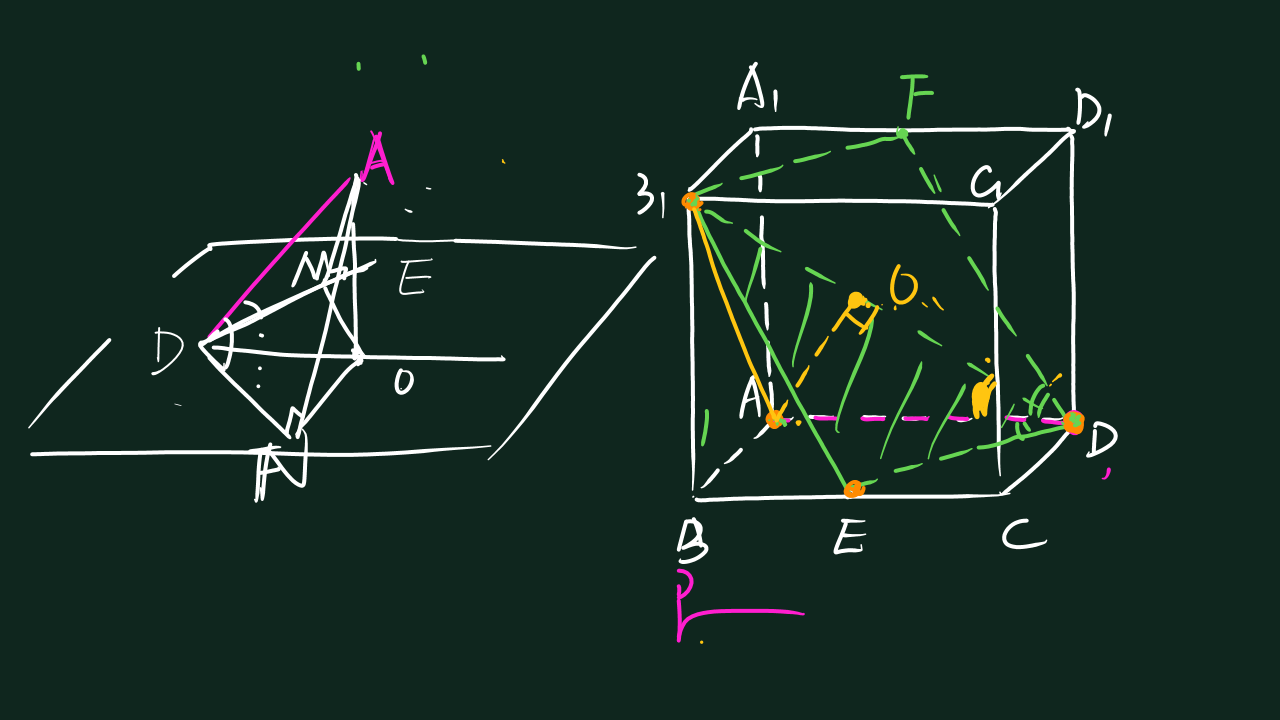 A
M
E
D
O
N
A₁
F
D₁
B₁
C₁
O
A
D
B
E
C